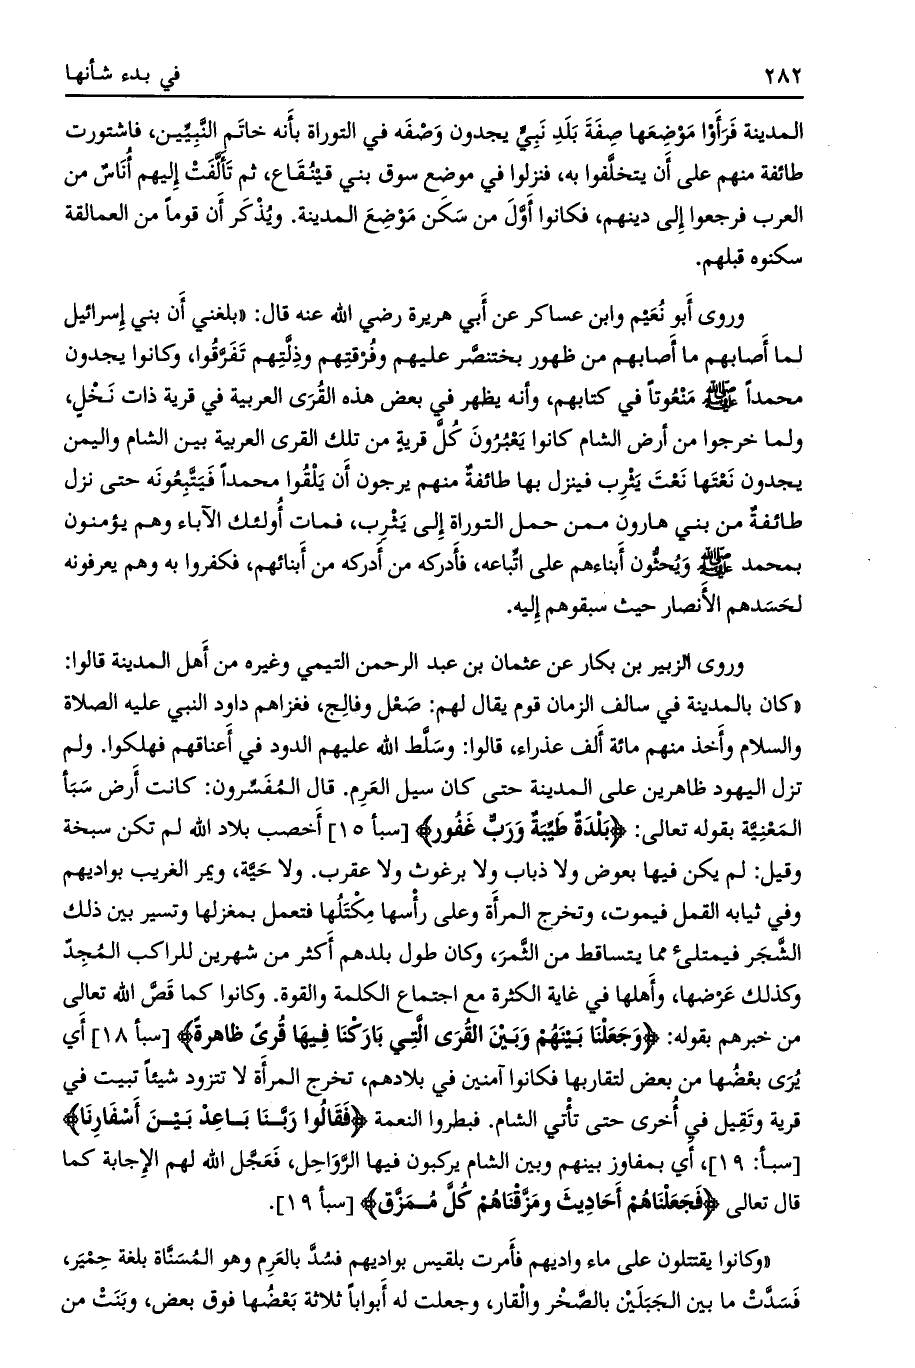 ٢٨٢ في بدء شأنها
المدينة فَرَأَوْا مَوْضِعَها صِفَةَ بَلَدِ نَبِيٍّ يجدون وَصْفَه في التوراة بأنه خاتَمِ النَّبِيِّين، فاشتورت
طائفة منهم على أَن يتخلَّفوا به، فنزلوا في موضع سوق بني قَيْنُقَاع، ثم تَأَلَّفَتْ إِليهم أُنَاسٌ من
العرب فرجعوا إِلى دينهم، فكانوا أَوَّلَ من سَكَن مَوْضِعَ المدينة. ويُذْكَر أَن قوماً من العمالقة
سكنوه قبلهم.
وروى أَبو نُعَيْم وابن عساكر عن أَبي هريرة رضي الله عنه قال: «بلغني أَن بني إِسرائيل
لما أَصابهم ما أَصابهم من ظهور بختنصَّر عليهم وفُرْقتِهم وذِلَّتِهم تَفَرَّقُوا، وكانوا يجدون
محمداً ﷺ مَنْعُوتاً في كتابهم، وأَنه يظهر في بعض هذه القُرَى العربية في قرية ذات نَخْلٍ،
ولما خرجوا من أرض الشام كانوا يَعْبُرُونَ كُلَّ قريةٍ من تلك القرى العربية بين الشام واليمن
يجدون نَعْتَها نَعْتَ يَثْرِب فينزل بها طائفةٌ منهم يرجون أَن يَلْقُوا محمداً فَيَتَّبِعُونَه حتى نزل
طائفةٌ من بني هارون ممن حمل التوراة إِلى يَثْرِب، فمات أُولئك الآباء وهم يؤمنون
بمحمد ﷺ وَيُحثُّون أَبناءهم على اتِّباعه، فأَدركه من أَدركه من أَبنائهم، فكفروا به وهم يعرفونه
لحَسَدهم الأَنصار حيث سبقوهم إِليه.
وروى الزبير بن بكار عن عثمان بن عبد الرحمن التيمي وغيره من أَهل المدينة قالوا:
«كان بالمدينة في سالف الزمان قوم يقال لهم: صَعْل وفالِج، فغزاهم داود النبي عليه الصلاة
والسلام وأَخذ منهم مائة أَلف عذراء، قالوا: وسَلَّط الله عليهم الدود في أَعناقهم فهلكوا. ولم
تزل اليهود ظاهرين على المدينة حتى كان سيل العَرِم. قال المُفَسِّرون: كانت أَرض سَبَأ
المَعْنِيَّة بقوله تعالى: ﴿بَلْدَةٌ طَيِّبَةٌ وَرَبٌّ غَفُور﴾ [سبأ ١٥] أَخصب بلاد الله لم تكن سبخة
وقيل: لم يكن فيها بعوض ولا ذباب ولا برغوث ولا عقرب. ولا حَيَّة، ويمر الغريب بواديهم
وفي ثيابه القمل فيموت، وتخرج المرأَة وعلى رأْسها مِكْتَلُها فتعمل بمغزلها وتسير بين ذلك
الشَّجَر فيمتلئ مما يتساقط من الثَّمرَ، وكان طول بلدهم أَكثر من شهرين للراكب المُجِدّ
وكذلك عَرْضها، وأَهلها في غاية الكثرة مع اجتماع الكلمة والقوة. وكانوا كما قَصَّ الله تعالى
من خبرهم بقوله: ﴿وَجَعَلْنَا بَيْنَهُمْ وَبَيْنَ القُرَى الَّتِي بَارَكْنَا فِيهَا قُرىً ظاهرةً﴾ [سبأ ١٨] أَي
يُرَى بَعْضُها من بعض لتقاربها فكانوا آمنين في بلادهم، تخرج المرأَة لا تتزود شيئاً تبيت في
قرية وتَقِيل في أُخرى حتى تأْتي الشام. فبطروا النعمة ﴿فَقَالُوا رَبَّنَا بَاعِدْ بَيْنَ أَسْفَارِنَا﴾
[سبأ: ١٩]، أَي بمفاوز بينهم وبين الشام يركبون فيها الرَّوَاحِل، فَعَجَّل الله لهم الإِجابة كما
قال تعالى ﴿فَجَعَلْنَاهُمْ أَحَادِيثَ ومَزَّقْنَاهُمْ كُلَّ مُمَزَّق﴾ [سبأ ١٩].
«وكانوا يقتتلون على ماء واديهم فأَمرت بلقيس بواديهم فسُدَّ بالعَرِم وهو المُسَنَّاة بلغة حِمْيَر،
فَسَدَّتْ ما بين الجَبَلَيْن بالصَّخْر والْقار، وجعلت له أَبواباً ثلاثة بَعْضُها فوق بعض، وبَنَتْ من